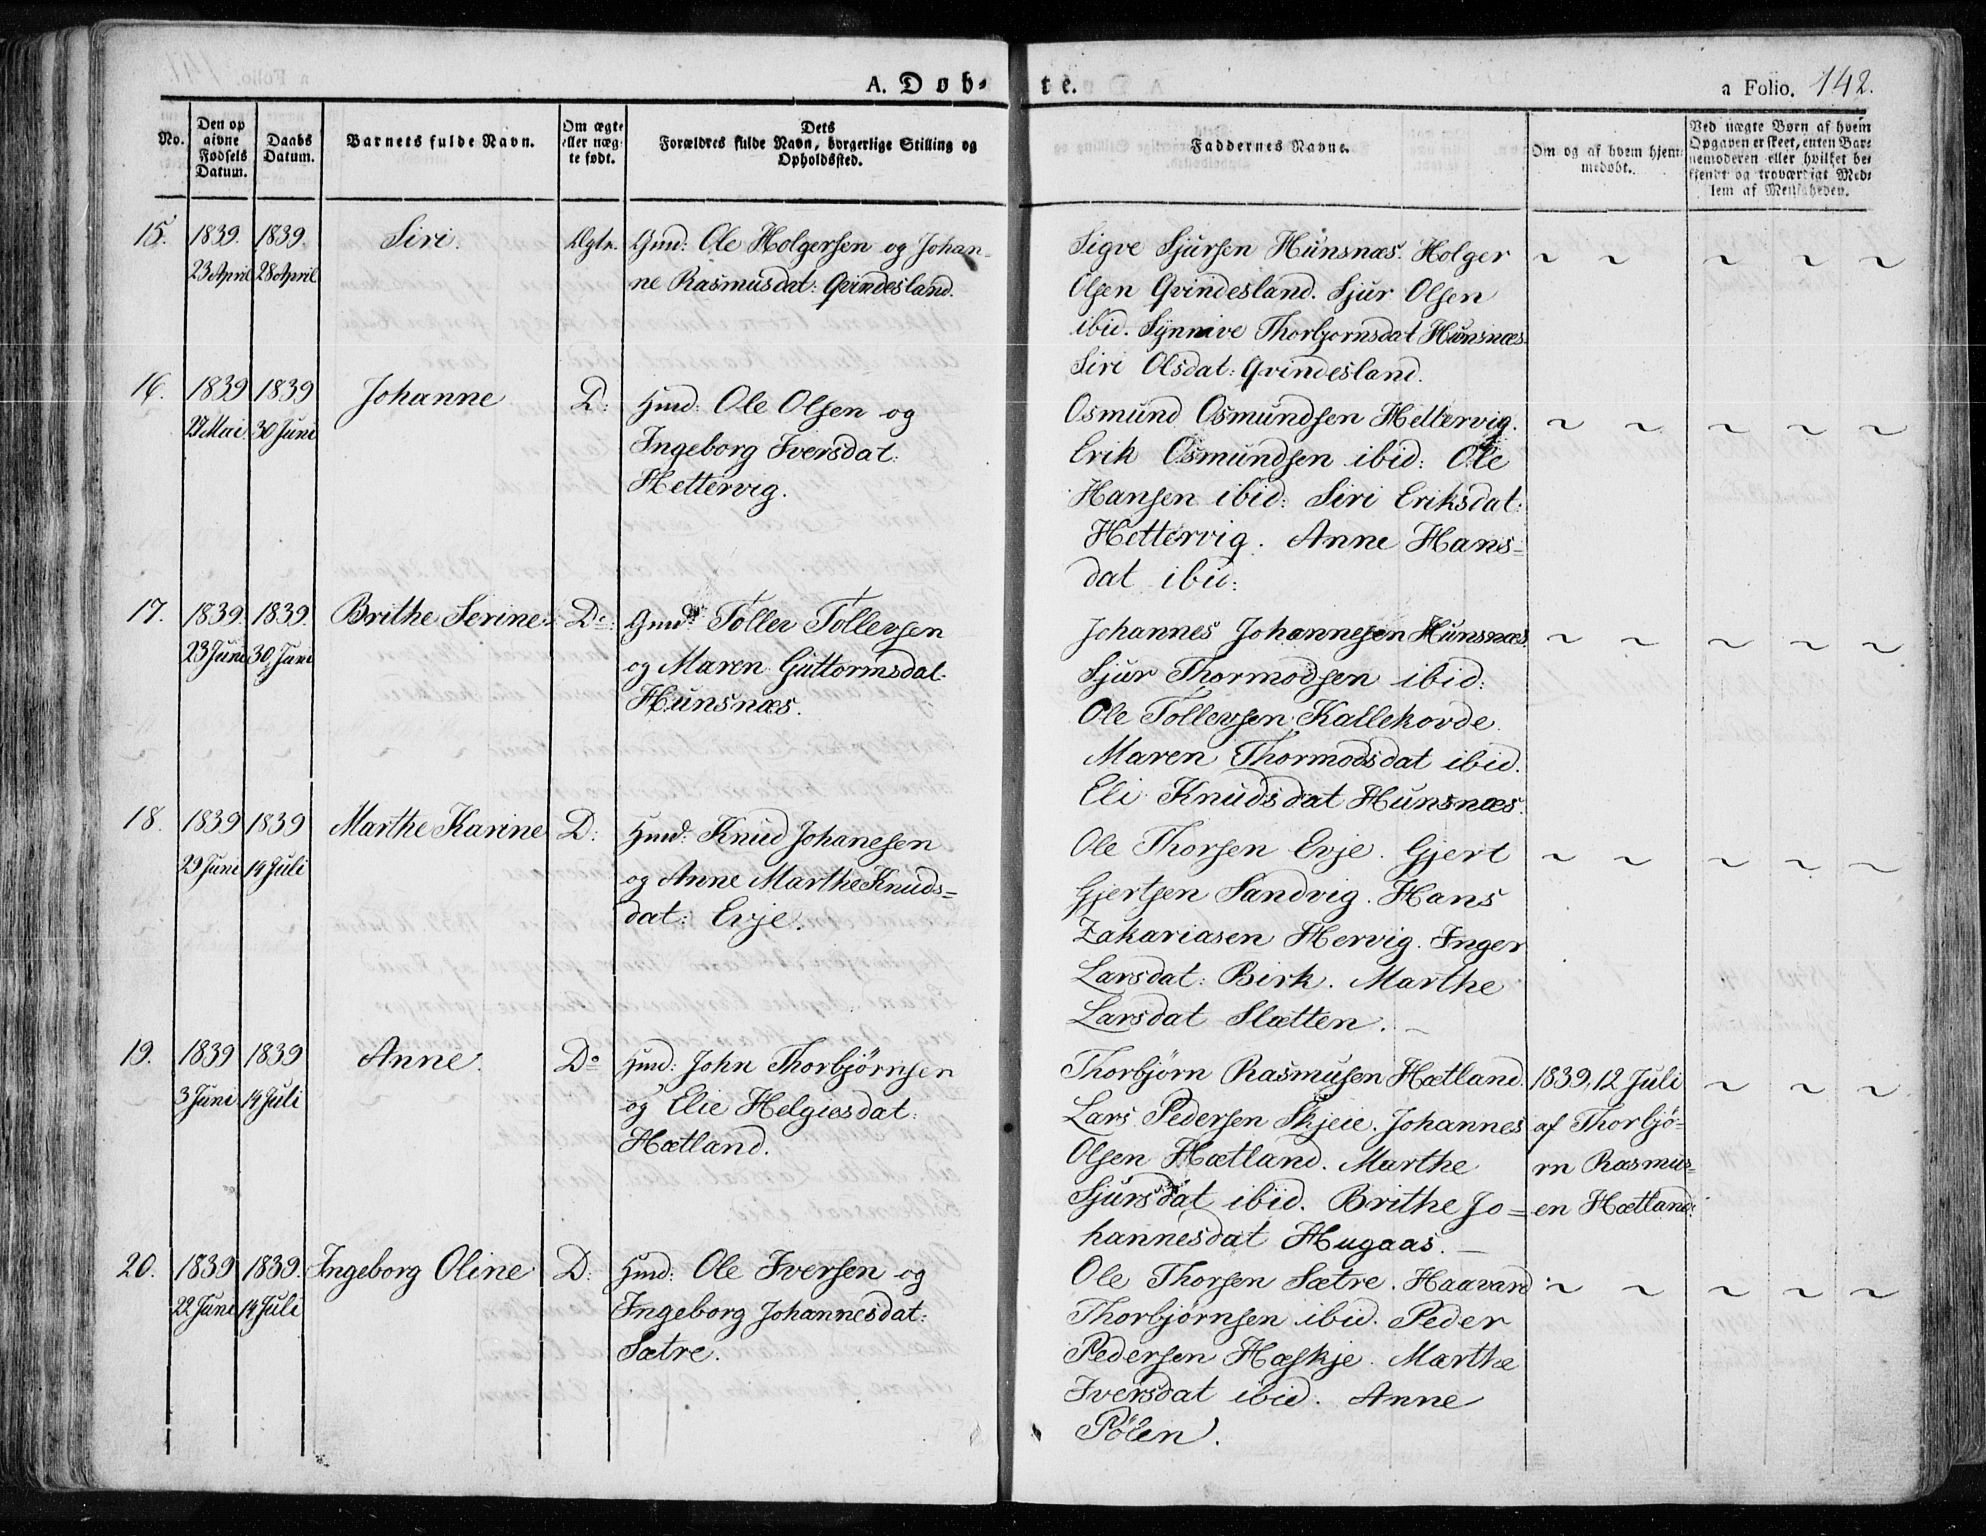 A. Døb-
te.
a Folio. 142.
No.
Den op
givne
Fødsels
Datum.
Daabs
Datum.
Barnets fulde Navn.
Om ægte
eller uæg-
te født.
Dets
Forældres fulde Navn, borgerlige Stilling og
Opholdssted.
Faddernes Navne.
Om og af hvem hjem-
medøbt.
Ved uægte Børn af hvem
Opgaven er skeet, enten Bar-
nemoderen eller hvilket be-
kjendt og troværdigt Med-
lem af Menigheden.
15. 1839. 1839. Siri. Ægte. Gmd: Ole Holgersen og Johan-
23 April 28 April ne Rasmusdat: Qvindesland.
Sigve Sjursen Hunsnæs. Holger ~ ~ ~ ~ ~
Olsen Qvindesland. Sjur Olsen
ibid. Synnive Thorbjornsdat Hunsnæs.
Siri Olsdat: Qvindesland.
16. 1839 1839 Johanne D: Hmd: Ole Olsen og
27 Mai 30 Juni Ingeborg Iversdat:
Hettervig.
Osmund Osmundsen Hettervig. ~ ~ ~ ~ ~
Erik Osmundsen ibid: Ole
Hansen ibid: Siri Eriksdat:
Hettervig. Anne Hans-
dat ibid:
17. 1839. 1839. Brithe Serine. Do: Gmd: Tollev Tollevsen
23 Juni 30 Juni og Maren Guttormsdat.
Hunsnæs.
Johannes Johannesen Hunsnæs. ~ ~ ~ ~ ~
Sjur Thormodsen ibid:
Ole Tollevsen Kallekovde.
Maren Thormodsdat ibid.
Eli Knudsdat Hunsnæs.
18. 1839 1839 Marthe Karine D: Hmd: Knud Johanesen
29 Juni 14 Juli og Anne Marthe Knuds-
dat: Evje.
Ole Thorsen Evje. Gjert ~ ~ ~ ~ ~
Gjertsen Sandvig. Hans
Zakariasen Hervig. Inger
Larsdat: Birk. Marthe
Larsdat Slætten. –
19. 1839 1839 Anne. Do Hmd: John Thorbjørnsen
3 Juni 14 Juli og Elie Helgiesdat:
Hætland.
Thorbjørn Rasmusen Hætland. 1839, 12 Juli ~ ~ ~
Lars Pedersen Skjeie. Johannes af Thorbjø-
Olsen Hætland. Marthe rn Rasmus-
Sjursdat ibid. Brithe Jo- en Hætland:
hannesdat Hugaas. –
20. 1839 1839. Ingeborg Oline D: Hmd: Ole Iversen og
22 Juni 14 Juli Ingeborg Johannesdat:
Sætre.
Ole Thorsen Sætre. Haavard ~ ~ ~ ~ ~
Thorbjørnsen ibid. Peder
Pedersen Hæskje. Marthe
Iversdat ibid. Anne
Pølen.